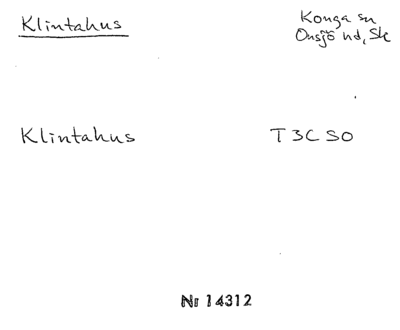 Klintahus
Konga sn
Onsjö hd, Sk
Klintahus T 3C SO
Nr 14312